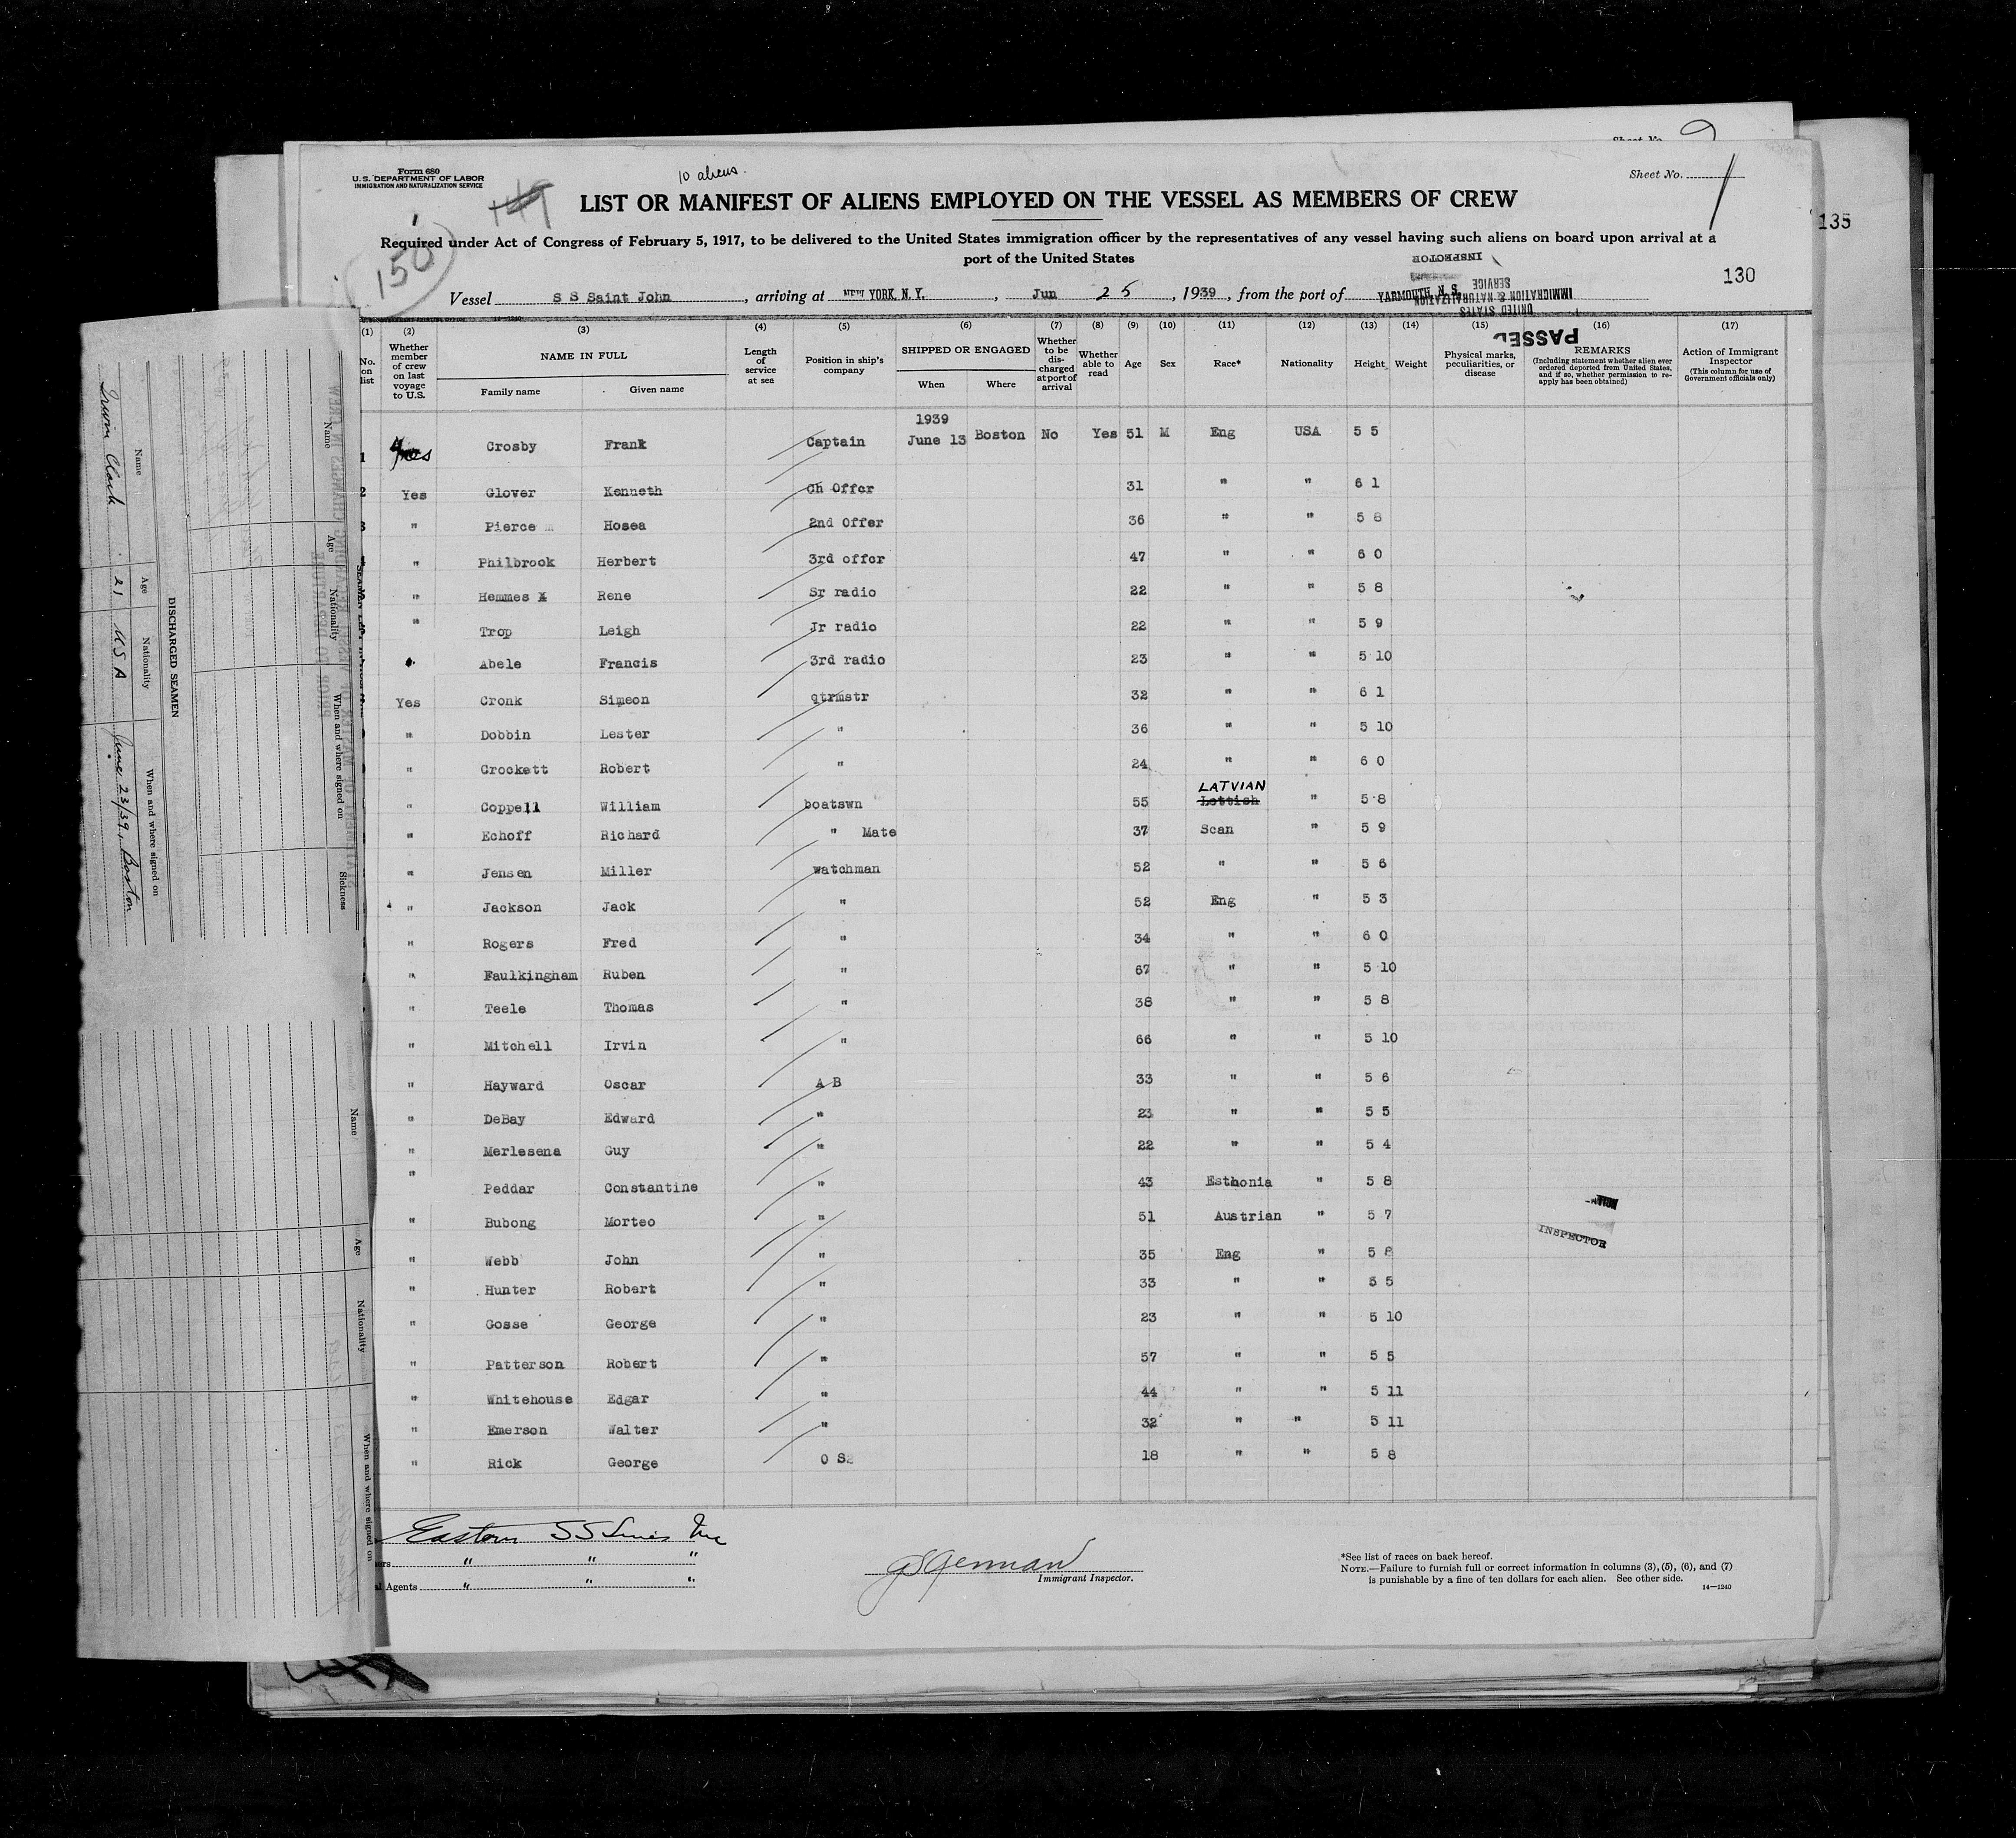 Sheet No. 9
Form 680
U. S. DEPARTMENT OF LABOR
IMMIGRATION AND NATURALIZATION SERVICE
10 aliens.
Sheet No. 1
149
LIST OR MANIFEST OF ALIENS EMPLOYED ON THE VESSEL AS MEMBERS OF CREW
135
150
Required under Act of Congress of February 5, 1917, to be delivered to the United States immigration officer by the representatives of any vessel having such aliens on board upon arrival at a
port of the United States
130
Vessel S S Saint John, arriving at NEW YORK, N. Y., Jun 25, 1939, from the port of YARMOUTH N. S.
PASSED
UNITED STATES
IMMIGRATION & NATURALIZATION
SERVICE
INSPECTOR
(1) (2) (3) (4) (5) (6) (7) (8) (9) (10) (11) (12) (13) (14) (15) (16) (17)
No. on list
Whether member of crew on last voyage to U.S.
NAME IN FULL
Family name
Given name
Length of service at sea
Position in ship's company
SHIPPED OR ENGAGED
When
Where
Whether to be discharged at port of arrival
Whether able to read
Age
Sex
Race*
Nationality
Height
Weight
Physical marks, peculiarities, or disease
REMARKS
(Including statement whether alien ever ordered deported from United States, and if so, whether permission to reapply has been obtained)
Action of Immigrant Inspector
(This column for use of Government officials only)
1939
1 Yes Crosby Frank Captain June 13 Boston No Yes 51 M Eng USA 5 5
2 Yes Glover Kenneth Ch Offcr 31 " " 6 1
3 " Pierce Hosea 2nd Offcr 36 " " 5 8
" Philbrook Herbert 3rd offcr 47 " " 6 0
" Hemmes Rene Sr radio 22 " " 5 8
" Trop Leigh Jr radio 22 " " 5 9
Abele Francis 3rd radio 23 " " 5 10
Yes Cronk Simeon qtrmstr 32 " " 6 1
" Dobbin Lester " 36 " " 5 10
" Crockett Robert " 24 " " 6 0
" Coppell William boatswn 55 Lettish LATVIAN " 5 8
" Echoff Richard " Mate 37 Scan " 5 9
" Jensen Miller watchman 52 " " 5 6
" Jackson Jack " 52 Eng " 5 3
" Rogers Fred " 34 " " 6 0
" Faulkingham Ruben " 67 " " 5 10
" Teele Thomas " 38 " " 5 8
" Mitchell Irvin " 66 " " 5 10
" Hayward Oscar A B 33 " " 5 6
" DeBay Edward " 23 " " 5 5
" Merlesena Guy " 22 " " 5 4
" Peddar Constantine " 43 Esthonia " 5 8
" Bubong Morteo " 51 Austrian " 5 7
" Webb John " 35 Eng " 5 8
" Hunter Robert " 33 " " 5 5
" Gosse George " 23 " " 5 10
" Patterson Robert " 57 " " 5 5
" Whitehouse Edgar " 44 " " 5 11
" Emerson Walter " 32 " " 5 11
" Rick George O S 18 " " 5 8
INSPECTOR
Eastern SS Lines Inc
" " "
Agents " " "
Immigrant Inspector.
*See list of races on back hereof.
NOTE.—Failure to furnish full or correct information in columns (3), (5), (6), and (7)
is punishable by a fine of ten dollars for each alien. See other side.
14—1240
DISCHARGED SEAMEN
Name
Age
Nationality
When and where signed on
Irwin Clark 21 USA June 23/39, Boston
Name
Age
Nationality
When and where signed on
Sickness
PRIOR TO DEPARTURE
Name
Age
Nationality
When and where signed on